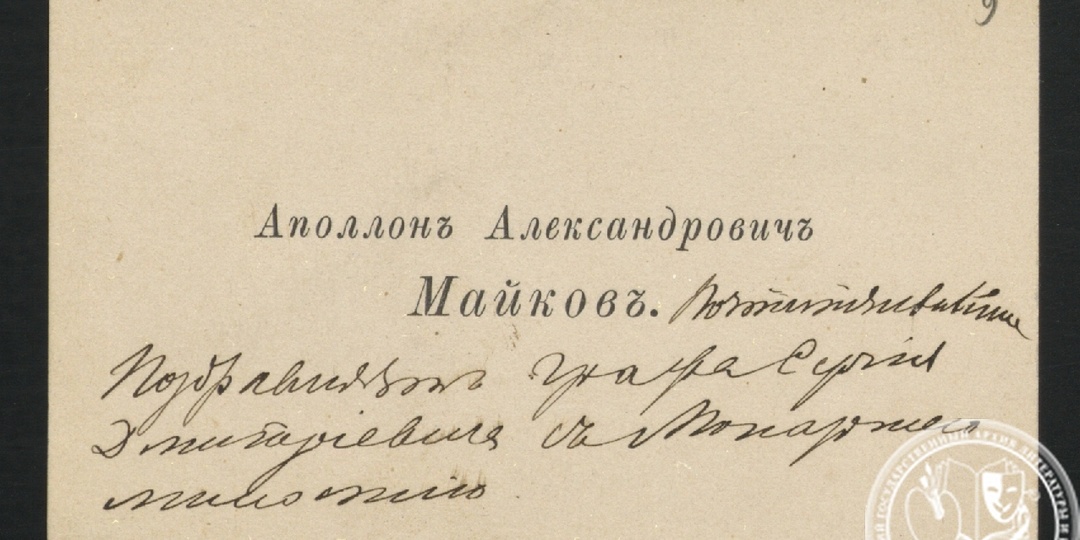 9
Аполлонъ Александровичъ
Майковъ. Почтительнѣйше
поздравляетъ графа Сергія
Дмитріевича съ Монаршею
милостію
ГОСУДАРСТВЕННЫЙ АРХИВ ЛИТЕРАТУРЫ И